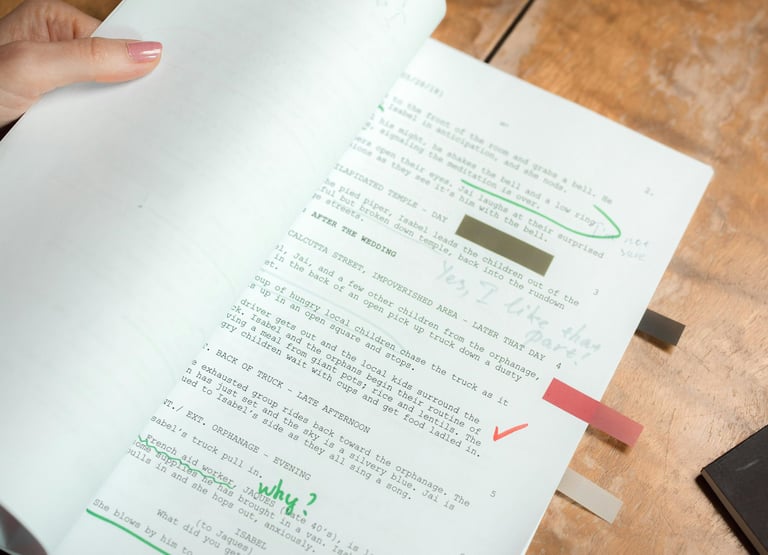 to the front of the room and grabs a bell. He
Isabel in anticipation, and she nods.
2.
his might, he shakes the bell and a low ring
signaling the meditation is over.
open their eyes. Jai laughs at their surprised
as they see it's him with the bell.
not
sure
DILAPIDATED TEMPLE - DAY
3
pied piper, Isabel leads the children out of the
but broken down temple, back into the rundown
streets.
Yes, I like that
part!
AFTER THE WEDDING
CALCUTTA STREET, IMPOVERISHED AREA - LATER THAT DAY
4
Jai, and a few other children from the orphanage,
in the back of an open pick up truck down a dusty
of hungry local children chase the truck as it
up in an open square and stops.
driver gets out and the local kids surround the
Isabel and the orphans begin their routine of
a meal from giant pots; rice and lentils. The
children wait with cups and get food ladled in.
BACK OF TRUCK - LATE AFTERNOON
5
exhausted group rides back toward the orphanage. The
has just set and the sky is a silvery blue. Jai is
to Isabel's side as they all sing a song.
INT./ EXT. ORPHANAGE - EVENING
Isabel's truck pull in.
French aid worker, JAQUES (late 40's), is
why?
supplies he has brought in a van.
in and she hops out, anxiously.
ISABEL
(to Jaques)
What did you
She blows by him to